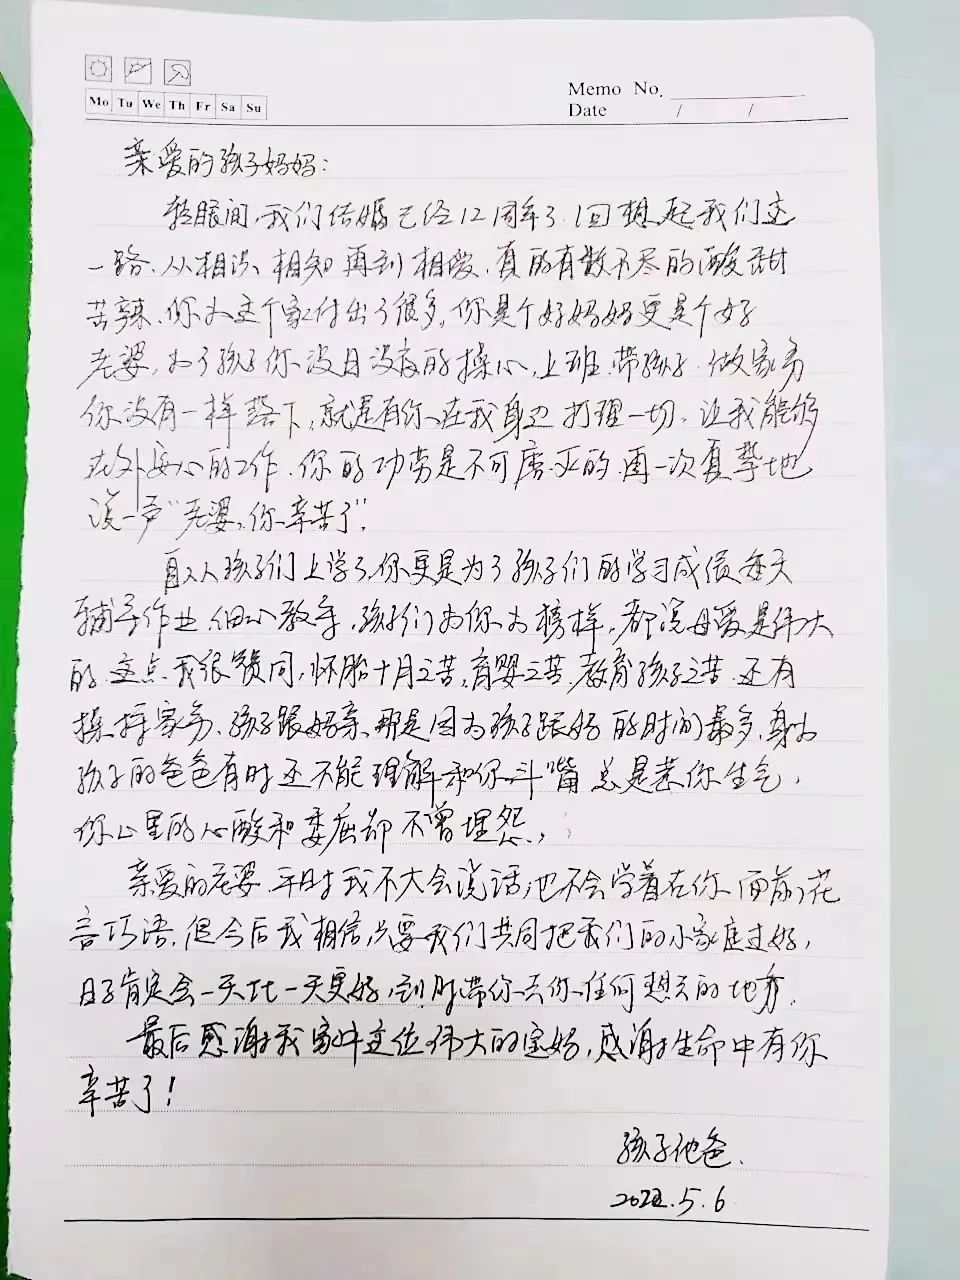 Mo Tu We Th Fr Sa Su
Memo No.
Date / /
亲爱的孩子妈妈：
转眼间，我们结婚已经12周年了，回想起我们这
一路，从相识、相知再到相爱，真的有数不尽的酸甜
苦辣，你为这个家付出了很多，你是个好妈妈更是个好
老婆，为了孩子你没日没夜的操心，上班、带孩子、做家务
你没有一样落下，就是有你在我身边打理一切，让我能够
在外安心的工作，你的功劳是不可磨灭的，再一次真挚地
说一声“老婆，你辛苦了”。
自从孩子们上学了，你更是为了孩子们的学习成绩每天
辅导作业，细心教导，孩子们为你为榜样，都说母爱是伟大
的，这点我很赞同，怀胎十月之苦，育婴之苦，教育孩子之苦，还有
操持家务，孩子跟妈亲，那是因为孩子跟妈的时间最多，身为
孩子的爸爸有时还不能理解和你斗嘴总是惹你生气，
你心里的心酸和委屈却不曾埋怨，
亲爱的老婆，平时我不大会说话，也不会学着在你面前花
言巧语，但今后我相信，只要我们共同把我们的小家庭过好，
日子肯定会一天比一天更好，到时带你去你任何想去的地方。
最后感谢我家中这位伟大的宝妈，感谢生命中有你
辛苦了！
孩子他爸．
2022.5.6